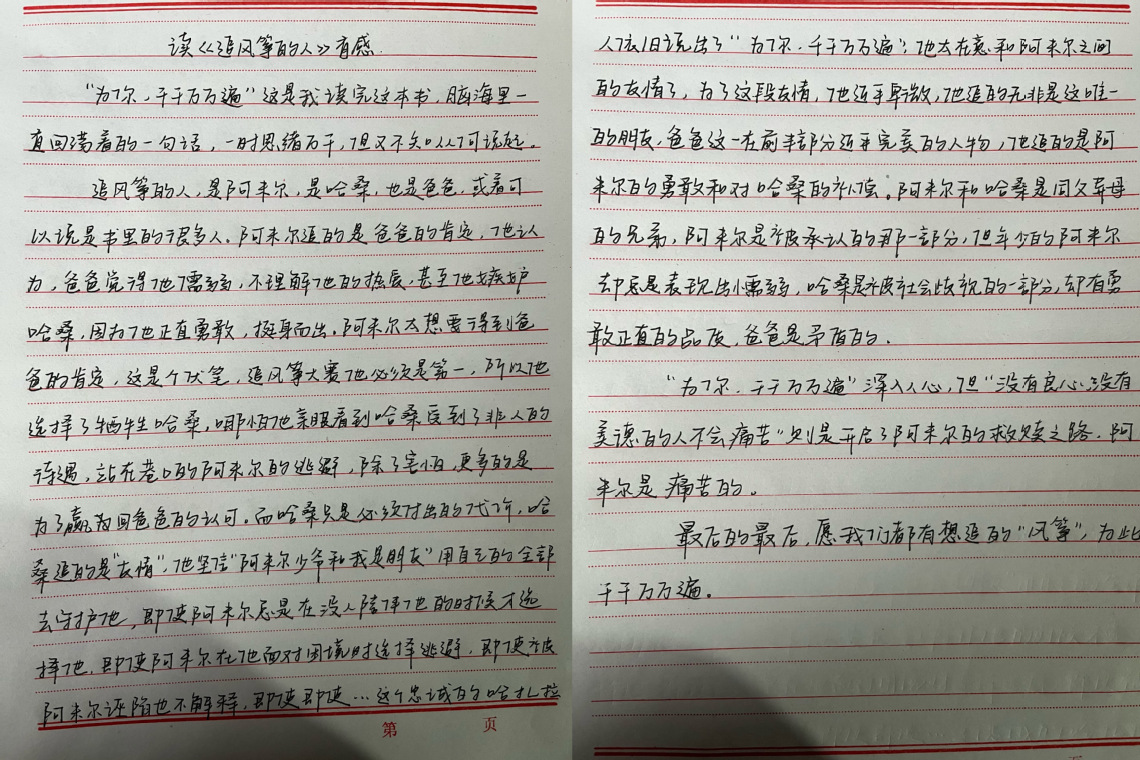 读《追风筝的人》有感.
“为了你，千千万万遍”这是我读完这本书，脑海里一
直回荡着的一句话，一时思绪万千，但又不知从何说起。
追风筝的人，是阿米尔，是哈桑，也是爸爸，或者可
以说是书里的很多人。阿米尔追的是爸爸的肯定，他认
为，爸爸觉得他懦弱，不理解他的热爱，甚至他嫉妒
哈桑，因为他正直勇敢，挺身而出。阿米尔太想要得到爸
爸的肯定，这是个伏笔，追风筝大赛他必须是第一，所以他
选择了牺牲哈桑，哪怕他亲眼看到哈桑受到了非人的
待遇，站在巷口的阿米尔的逃避，除了害怕，更多的是
为了赢回爸爸的认可。而哈桑只是必须付出的代价，哈
桑追的是“友情”，他坚信“阿米尔少爷和我是朋友”用自己的全部
去守护他，即使阿米尔总是在没人陪伴他的时候才选
择他，即使阿米尔在他面对困境时选择逃避，即使被
阿米尔诬陷也不解释，即使即使…这个忠诚的哈扎拉
第 页
人依旧说出了“为你，千千万万遍”；他太在意和阿米尔之间
的友情了，为了这段友情，他近乎卑微，他追的无非是这唯一
的朋友，爸爸这一在前半部分近乎完美的人物，他追的是阿
米尔的勇敢和对哈桑的补偿。阿米尔和哈桑是同父异母
的兄弟，阿米尔是被承认的那一部分，但年少的阿米尔
却总是表现出懦弱，哈桑是被社会歧视的一部分，却有勇
敢正直的品质，爸爸是矛盾的.
“为了你，千千万万遍”深入人心，但“没有良心，没有
美德的人不会痛苦”则是开启了阿米尔的救赎之路，阿
米尔是痛苦的。
最后的最后，愿我们都有想追的“风筝”，为此
千千万万遍。